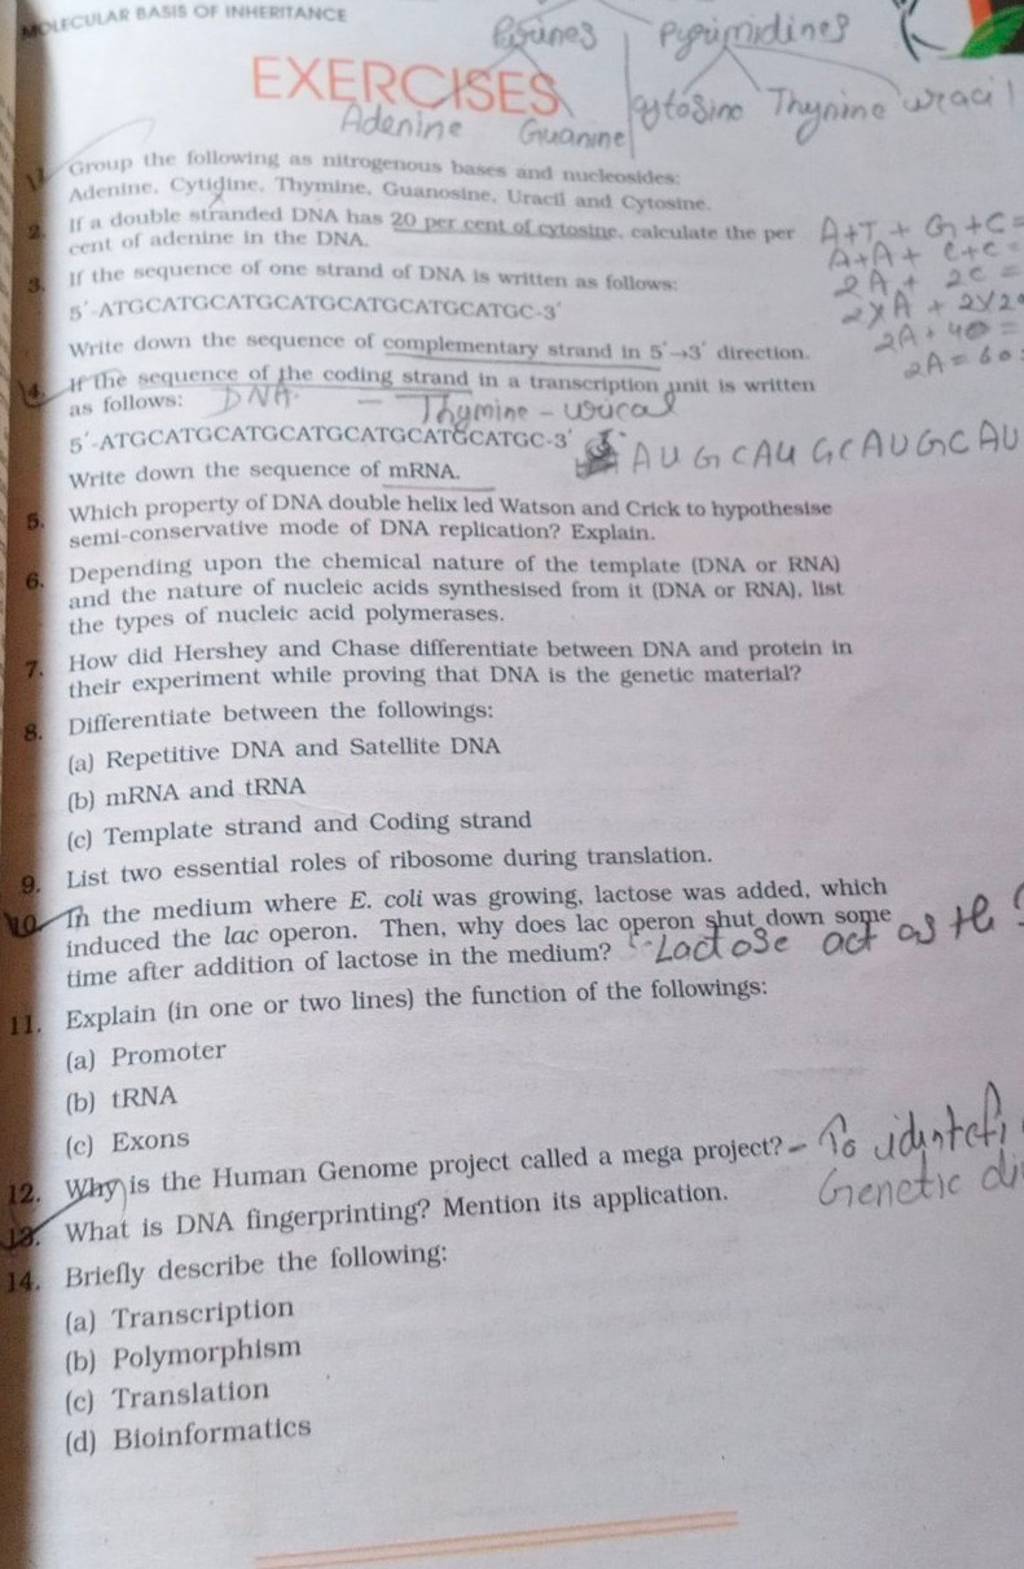 MOLECULAR BASIS OF INHERITANCE
Purines Pyrimidines
EXERCISES
Adenine Guanine Cytosine Thynine uracil
1. Group the following as nitrogenous bases and nucleosides:
Adenine, Cytidine, Thymine, Guanosine, Uracil and Cytosine.
2. If a double stranded DNA has 20 per cent of cytosine, calculate the per
cent of adenine in the DNA.
A+T + G+C =
A+A + C+C =
2A + 2C =
2XA + 2X20
2A + 40 =
2A = 60
3. If the sequence of one strand of DNA is written as follows:
5'-ATGCATGCATGCATGCATGCATGCATGC-3'
Write down the sequence of complementary strand in 5'→3' direction.
4. If the sequence of the coding strand in a transcription unit is written
as follows: DNA. - Thymine - uracal
5'-ATGCATGCATGCATGCATGCATGCATGC-3'
AUGCAUGCAUGCAU
Write down the sequence of mRNA.
5. Which property of DNA double helix led Watson and Crick to hypothesise
semi-conservative mode of DNA replication? Explain.
6. Depending upon the chemical nature of the template (DNA or RNA)
and the nature of nucleic acids synthesised from it (DNA or RNA), list
the types of nucleic acid polymerases.
7. How did Hershey and Chase differentiate between DNA and protein in
their experiment while proving that DNA is the genetic material?
8. Differentiate between the followings:
(a) Repetitive DNA and Satellite DNA
(b) mRNA and tRNA
(c) Template strand and Coding strand
9. List two essential roles of ribosome during translation.
10. In the medium where E. coli was growing, lactose was added, which
induced the lac operon. Then, why does lac operon shut down some
time after addition of lactose in the medium? - Lactose act as the
11. Explain (in one or two lines) the function of the followings:
(a) Promoter
(b) tRNA
(c) Exons
12. Why is the Human Genome project called a mega project? - To identefi
Genetic di
13. What is DNA fingerprinting? Mention its application.
14. Briefly describe the following:
(a) Transcription
(b) Polymorphism
(c) Translation
(d) Bioinformatics